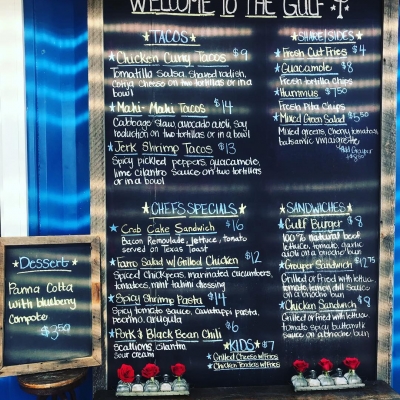 WELCOME TO THE GULF
TACOS
Chicken Curry Tacos $9
Tomatillo Salsa, Shaved radish,
Cotija Cheese on two tortillas or in a
bowl
Mahi-Mahi Tacos $14
Cabbage slaw, avocado aioli, soy
reduction on two tortillas or in a bowl
Jerk Shrimp Tacos $13
Spicy pickled peppers, guacamole,
lime cilantro sauce on two tortillas
or in a bowl
SHARE/SIDES
Fresh Cut Fries $4
Guacamole $8
Fresh tortilla Chips
Hummus $7.50
Fresh Pita Chips
Mixed Green Salad $5.50
Mixed greens, Cherry tomatoes,
balsamic vinaigrette
Add Grouper
+$8.50
CHEFS SPECIALS
Crab Cake Sandwich $16
Bacon Remoulade, lettuce, tomato
served on Texas Toast
Farro Salad w/ Grilled Chicken $12
Spiced Chickpeas, marinated cucumbers,
tomatoes, mint tahini dressing
Spicy Shrimp Pasta $14
Spicy tomato sauce, Cavatappi pasta,
pecorino, arugula
Pork & Black Bean Chili $6
Scallions, cilantro
Sour cream
SANDWICHES
Gulf Burger $8
100% natural beef,
lettuce, tomato, garlic
aioli on a brioche bun
Grouper Sandwich $12.75
Grilled or Fried with lettuce
tomato, lemon dill sauce
on a brioche bun
Chicken Sandwich $8
Grilled or fried with lettuce
tomato spicy buttermilk
sauce on a brioche bun
KIDS $7
Grilled Cheese w/ Fries
Chicken Tenders w/ Fries
Dessert
Panna Cotta
with blueberry
compote
$3.50